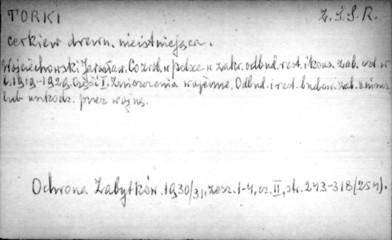 TORKI Z.S.S.R.
cerkiew drewn. nieistniejąca.
Wojciechowski Jarosław. Co zrob. w Polsce w zakr. odbud. rest. i kons. zab. od. w
l. 1919-1929. Część I. Zniszczenia wojenne. Odbud. i rest. budow. zab. zniszcz.
lub uszkodz. przez wojnę.
Ochrona Zabytków. 1930/31, zesz. 1-4, cz. II, str. 243-318 (254).